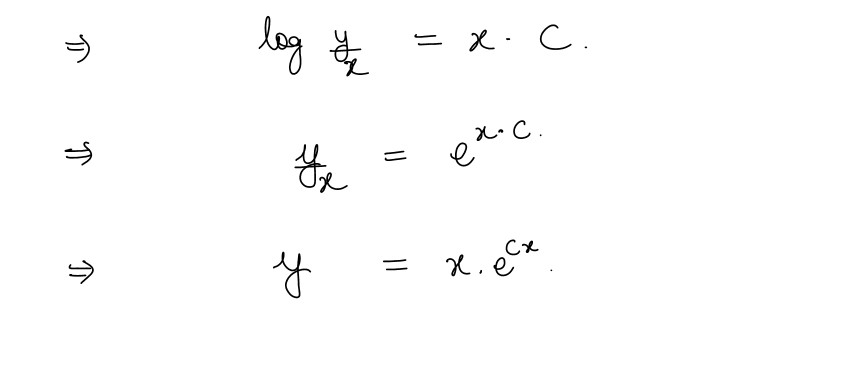 ⇒ log y/x = x · C .
⇒ y/x = e^{x · C} .
⇒ y = x . e^{Cx} .